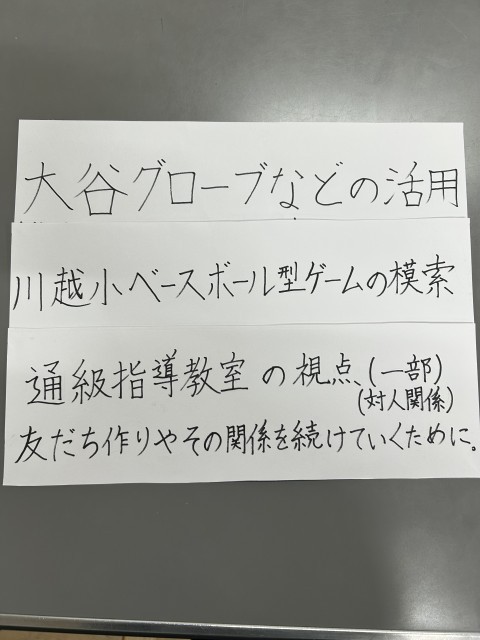 大谷グローブなどの活用
川越小ベースボール型ゲームの模索
通級指導教室の視点(一部)
(対人関係)
友だち作りやその関係を続けていくために。